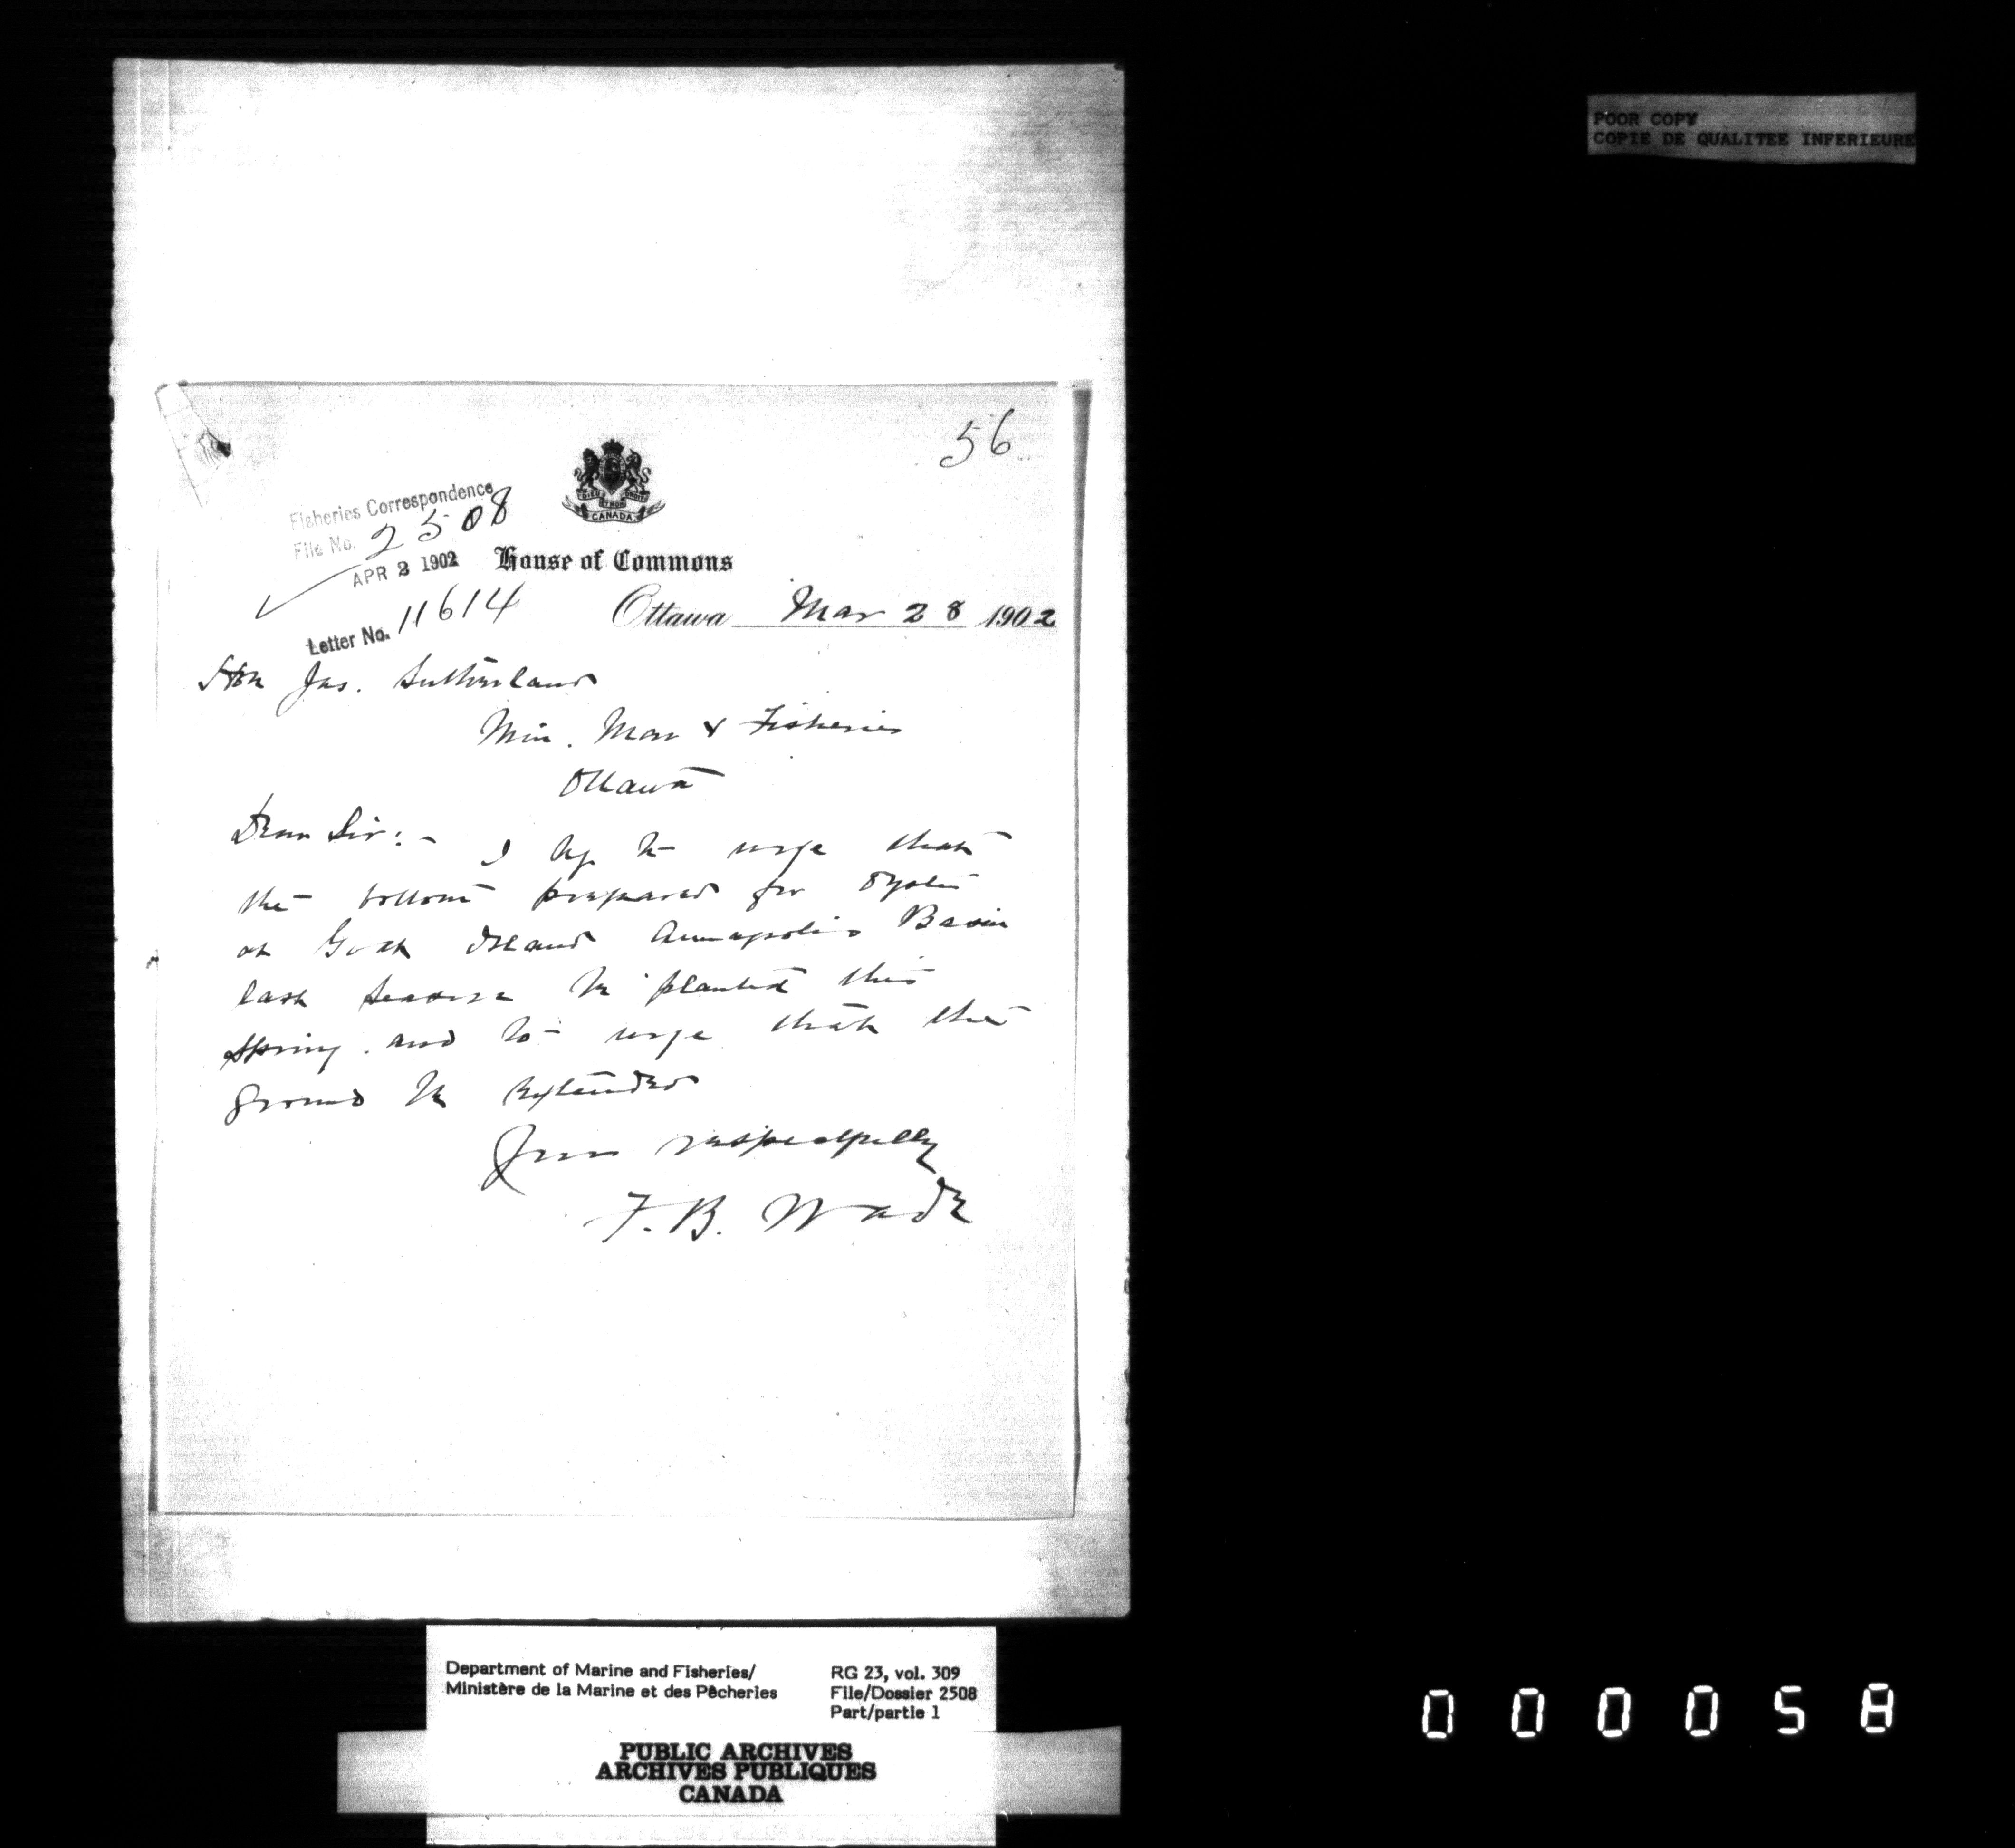 POOR COPY
COPIE DE QUALITEE INFERIEURE
56
DIEU ET MON DROIT
CANADA
Fisheries Correspondence
File No. 2508
APR 2 1902
House of Commons
Letter No. 11614
Ottawa Mar 28 1902
Hon Jas. Sutherland
Min. Mar & Fisheries
Ottawa
Dear Sir:- I beg to urge that
the bottom prepared for oysters
at Goat Island Annapolis Basin
last season be planted this
spring and to urge that the
ground be extended
Yours respectfully
F. B. Wade
Department of Marine and Fisheries/
Ministère de la Marine et des Pêcheries
RG 23, vol. 309
File/Dossier 2508
Part/partie 1
PUBLIC ARCHIVES
ARCHIVES PUBLIQUES
CANADA
000058